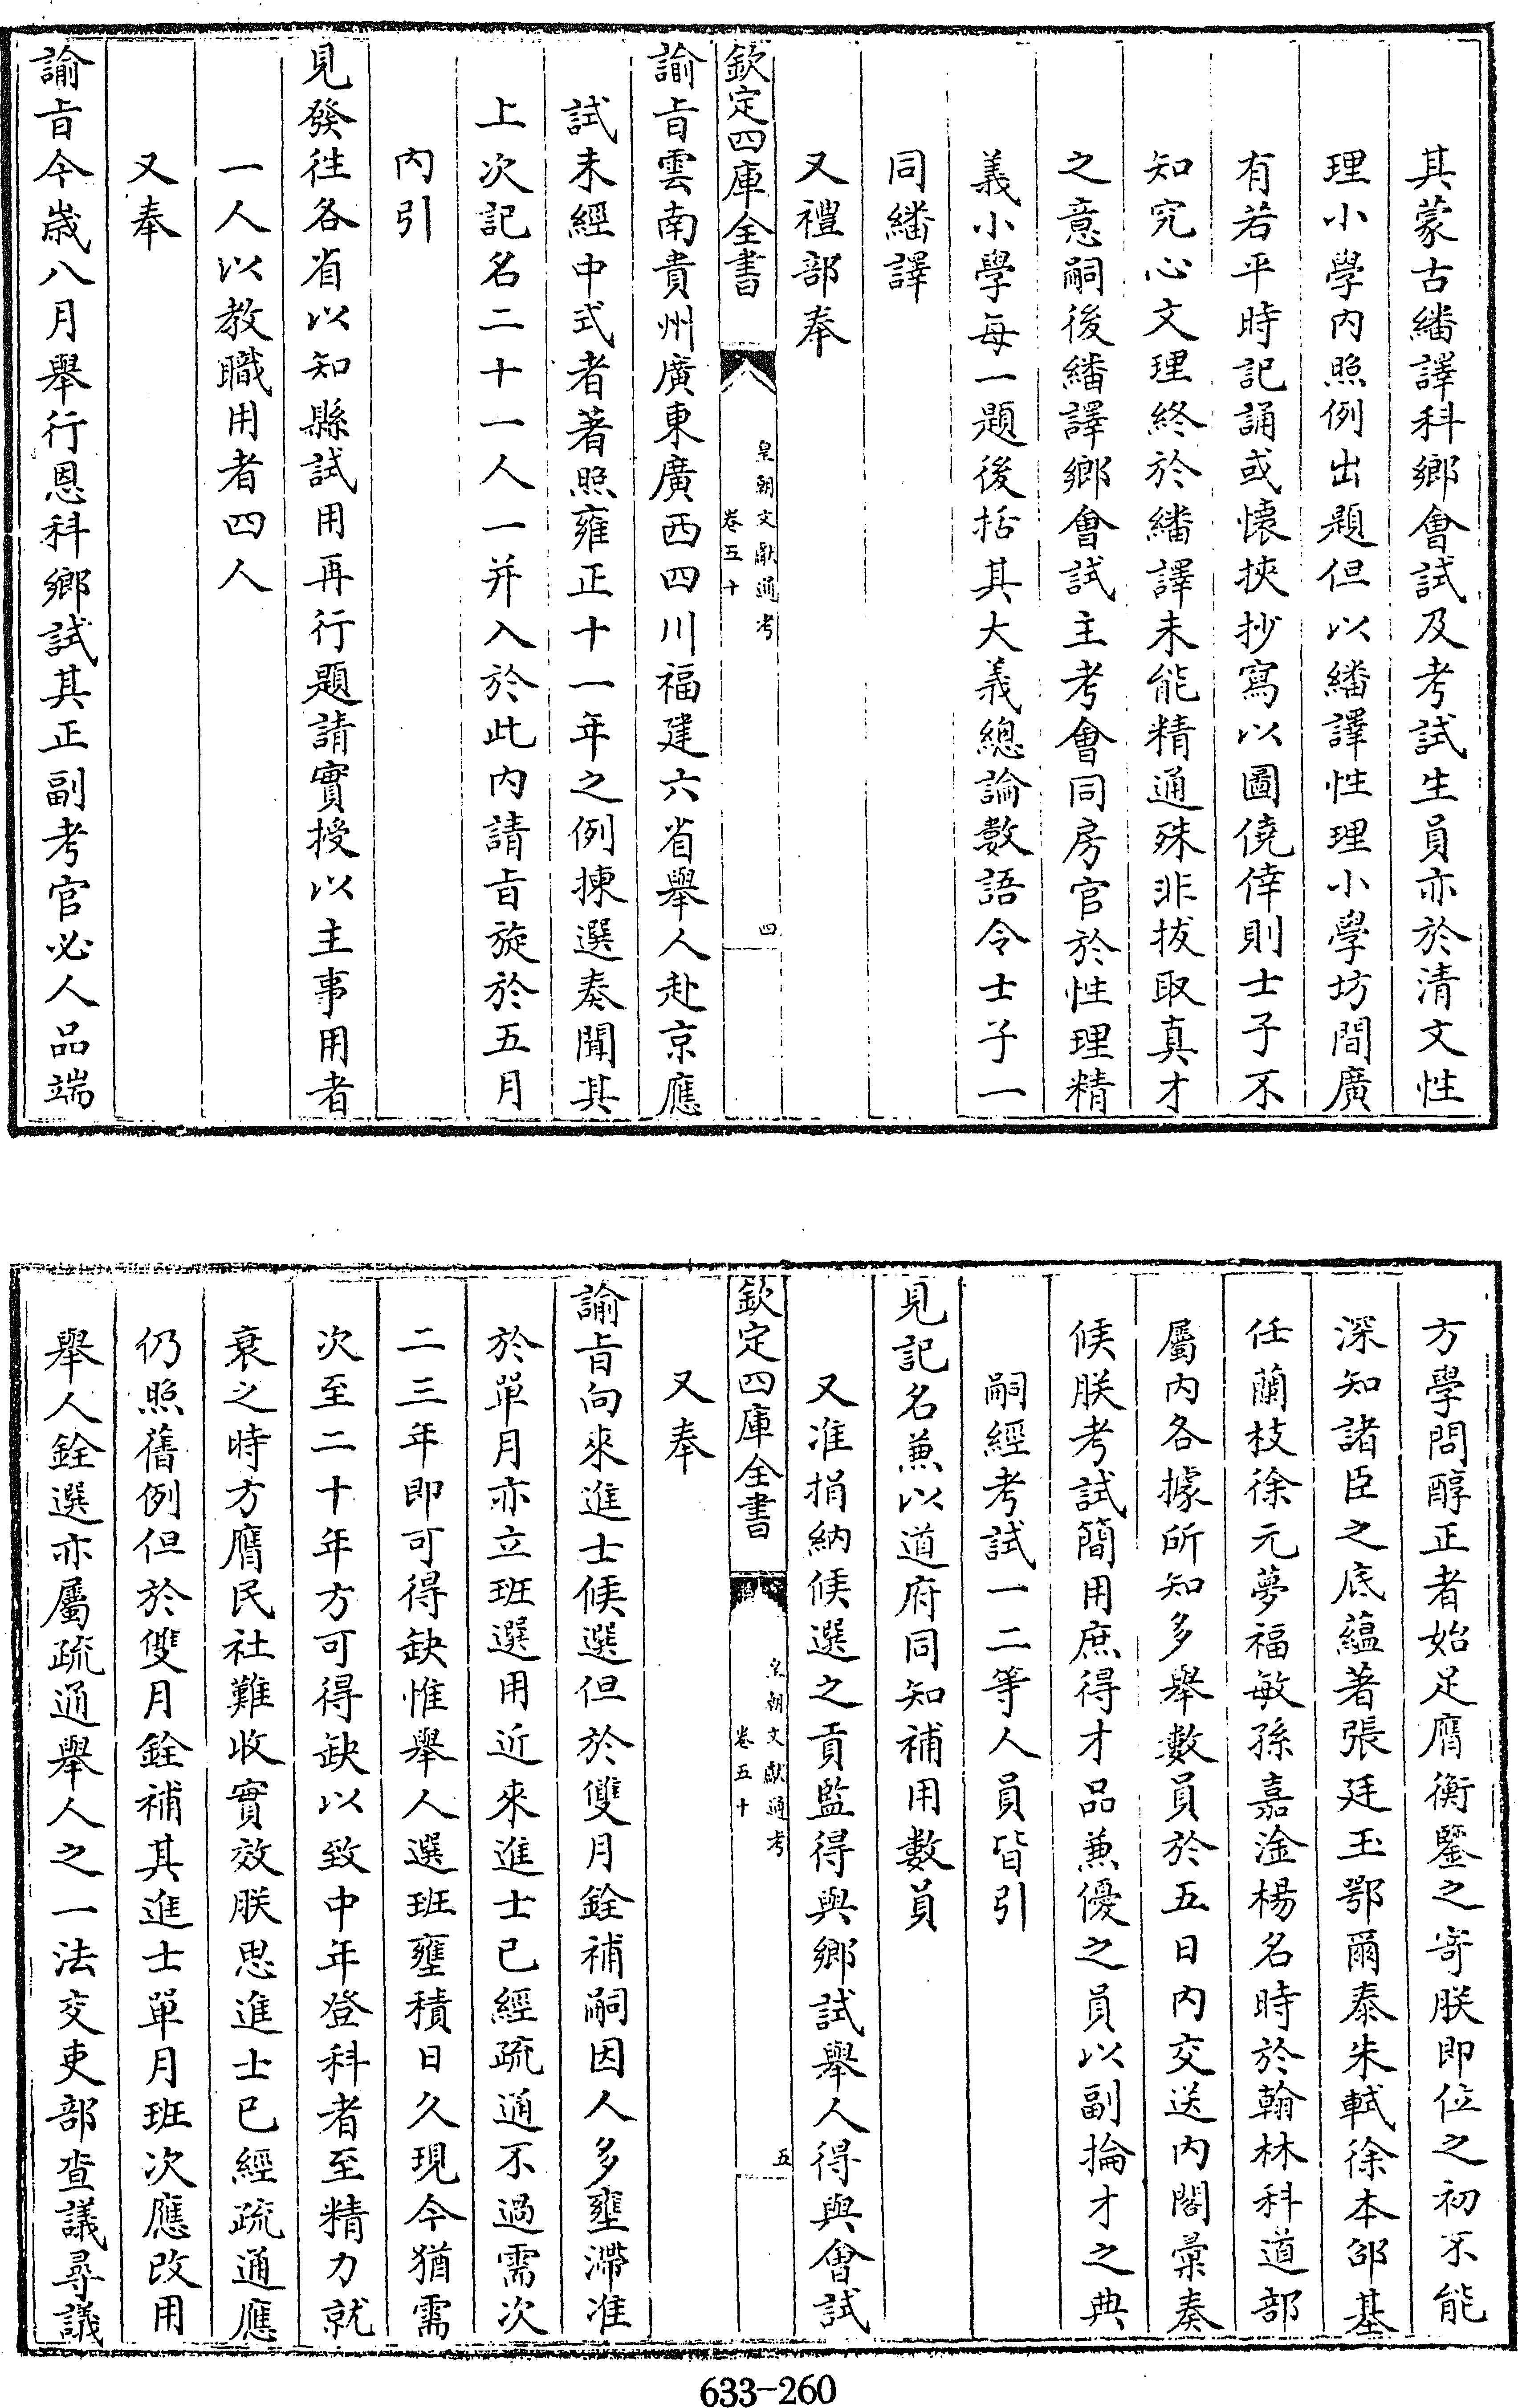 其蒙古繙譯科鄉會試及考試生員亦於清文性
理小學内照例出題但以繙譯性理小學坊間廣
有若平時記誦或懷挾抄寫以圖僥倖則士子不
知究心文理終於繙譯未能精通殊非拔取真才
之意嗣後繙譯鄉會試主考會同房官於性理精
義小學每一題後括其大義總論數語令士子一
同繙譯
又禮部奉
欽定四庫全書
皇朝文獻通考
卷五十
四
諭㫖雲南貴州廣東廣西四川福建六省舉人赴京應
試未經中式者著照雍正十一年之例揀選奏聞其
上次記名二十一人一并入於此内請㫖旋於五月
内引
見發往各省以知縣試用再行題請實授以主事用者
一人以教職用者四人
又奉
諭㫖今歲八月舉行恩科鄉試其正副考官必人品端
方學問醇正者始足膺衡鑒之寄朕即位之初不能
深知諸臣之底蘊著張廷玉鄂爾泰朱軾徐本邵基
任蘭枝徐元夢福敏孫嘉淦楊名時於翰林科道部
屬内各據所知多舉數員於五日内交送内閣彙奏
候朕考試簡用庶得才品兼優之員以副掄才之典
嗣經考試一二等人員皆引
見記名兼以道府同知補用數員
又准捐納候選之貢監得與鄉試舉人得與會試
欽定四庫全書
皇朝文獻通考
卷五十
五
又奉
諭㫖向來進士候選但於雙月銓補嗣因人多壅滯准
於單月亦立班選用近來進士已經疏通不過需次
二三年即可得缺惟舉人選班壅積日久現今猶需
次至二十年方可得缺以致中年登科者至精力就
衰之時方膺民社難收實效朕思進士已經疏通應
仍照舊例但於雙月銓補其進士單月班次應改用
舉人銓選亦屬疏通舉人之一法交吏部查議尋議
633-260